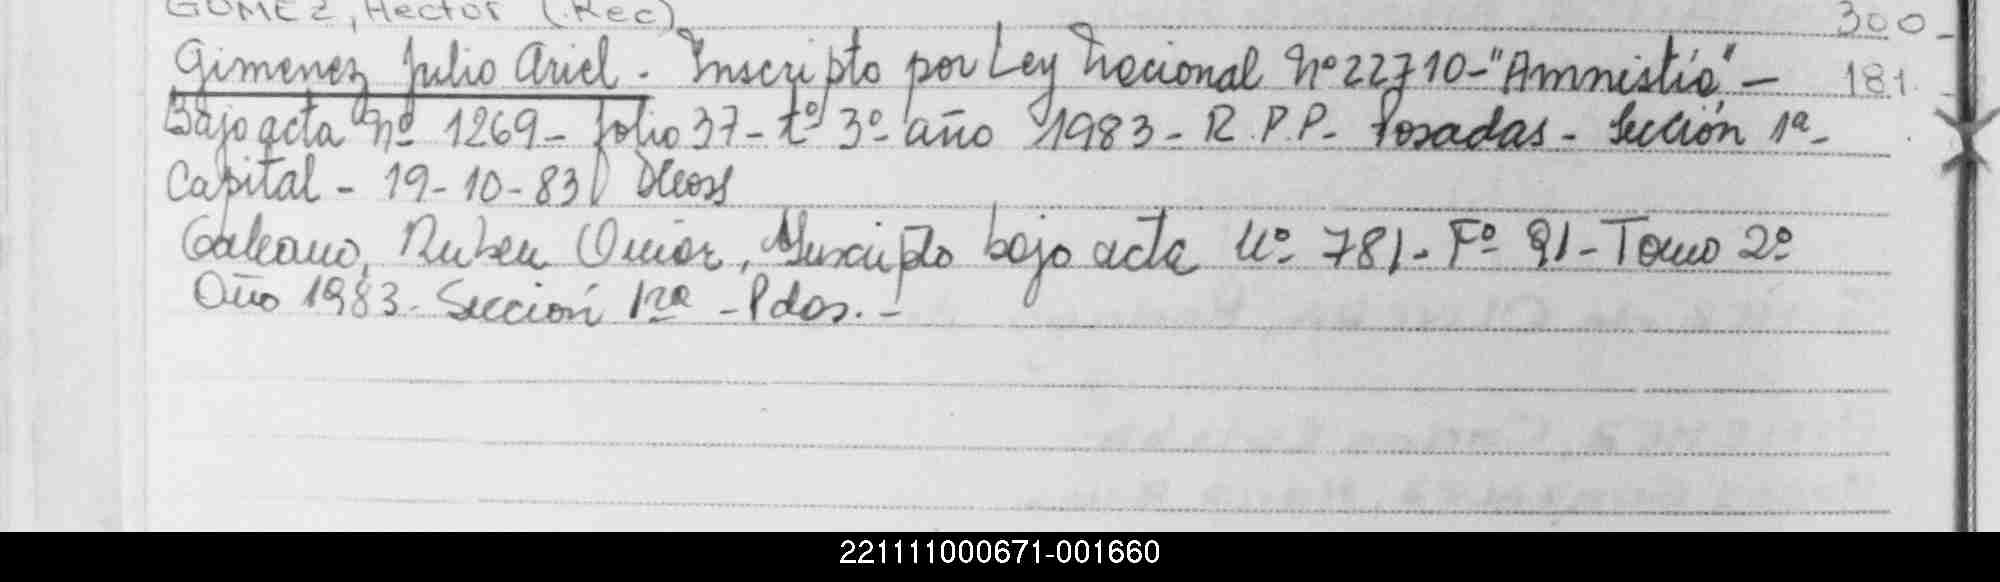 GOMEZ, Hector (Rec) 300_
Gimenez Julio Ariel. Inscripto por Ley Nacional Nº 22710-"Amnistía"- 181.
Bajo acta Nº 1269- folio 37- tº 3º año 1983- R.P.P- Posadas- Sección 1ª-
Capital- 19-10-83
Galeano, Ruben Omar, Inscripto bajo acta Nº 781- Fº 91- Tomo 2º
Año 1983- Sección 1ra - Pdas.-
221111000671-001660